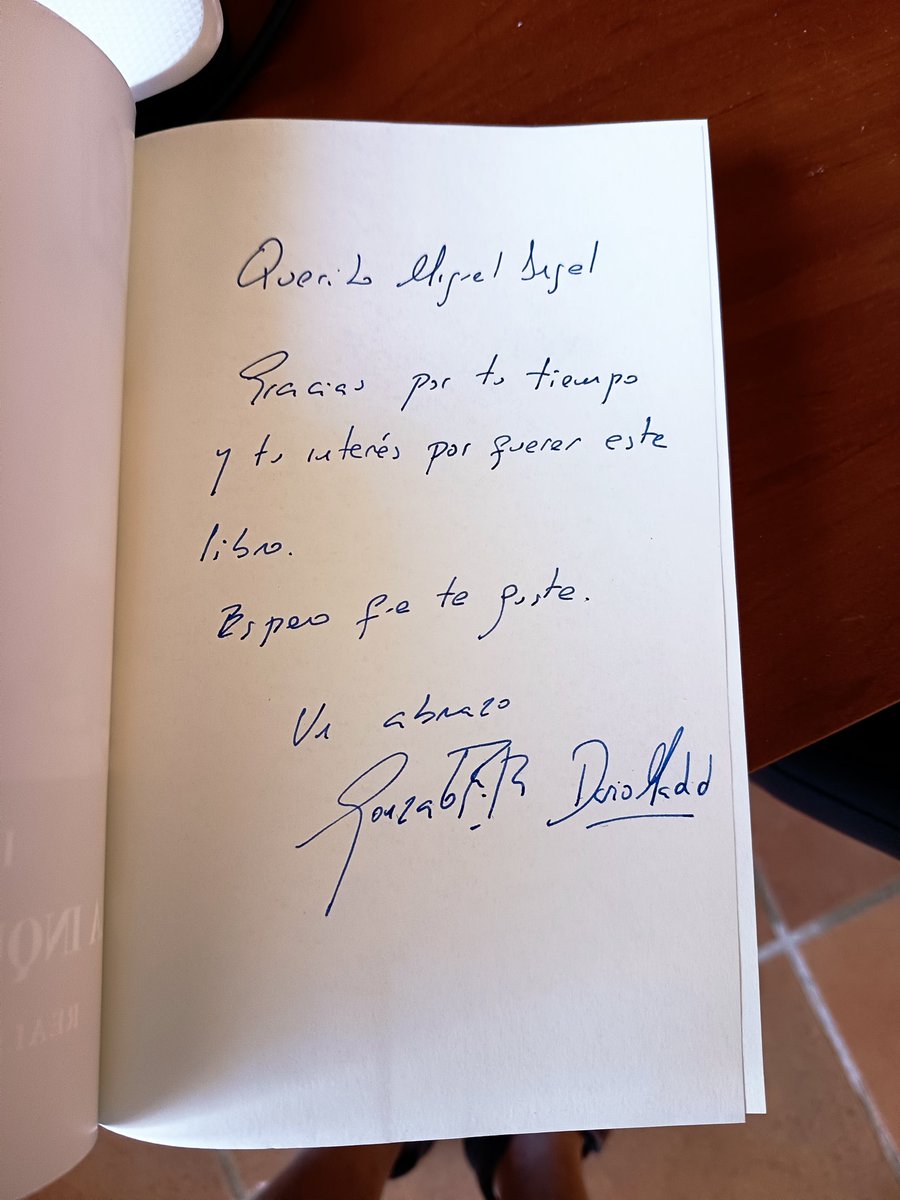 Querido Miguel Angel
Gracias por tu tiempo
y tu interés por querer este
libro.
Espero que te guste.
Un abrazo
Gonzalo
Dario
AINQ
REAL